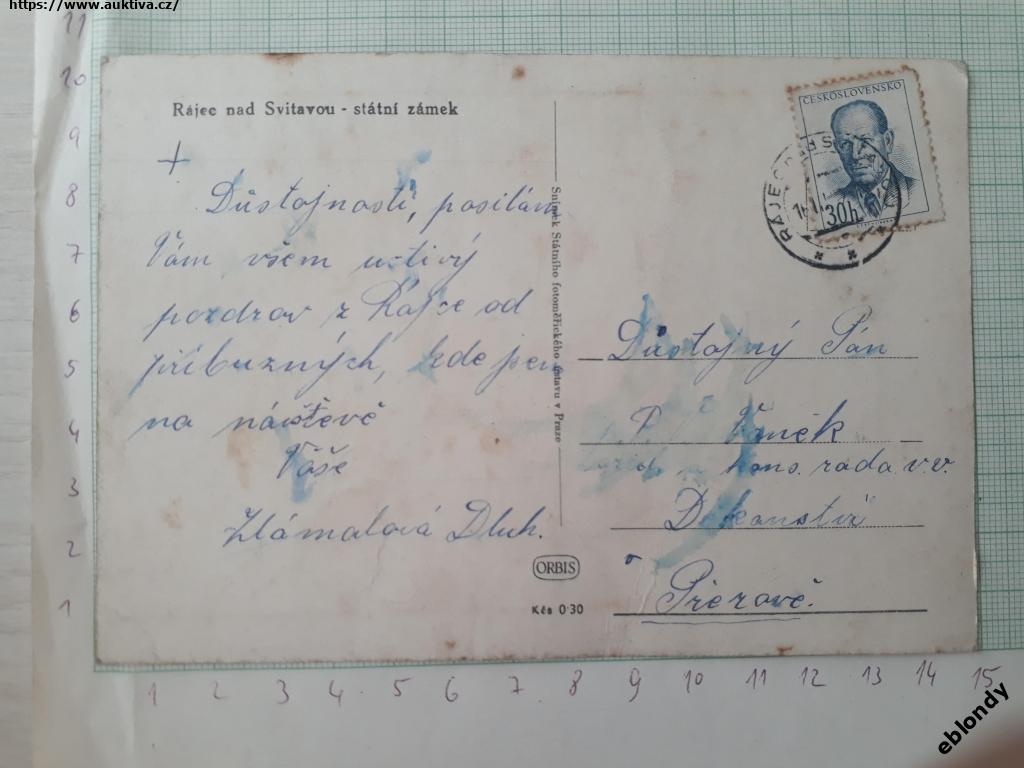 https://www.auktiva.cz/
Rájec nad Svitavou - státní zámek
Důstojnosti, posílám
Vám všem uctivý
pozdrav z Rájce od
příbuzných, kde jsem
na návštěvě
Vaše
Zlámalová Dluh.
Snímek Státního fotoměřického ústavu v Praze
ORBIS
Kčs 0·30
ČESKOSLOVENSKO
30h
RÁJEC
Důstojný Pán
P. Vaněk
kons. rada v.v.
Děkanství
v
Přerově.
11
10
9
8
7
6
5
4
3
2
1
1 2 3 4 5 6 7 8 9 10 11 12 13 14 15
eblondy